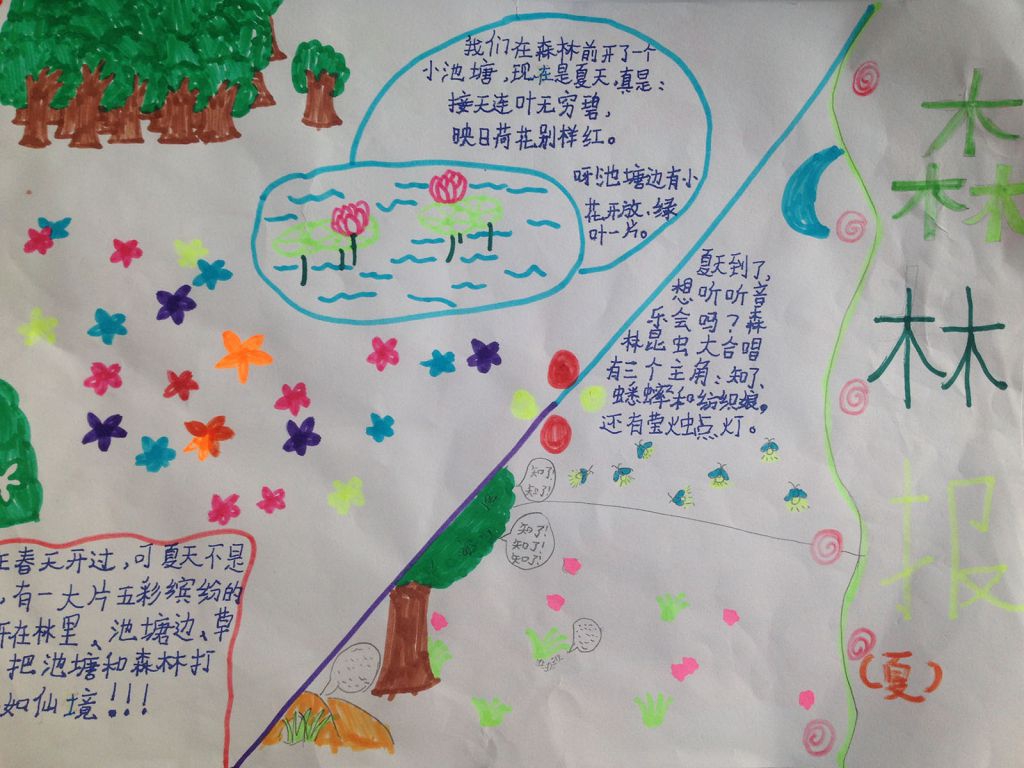 森
林
报
(夏)
我们在森林前开了一个
小池塘,现在是夏天,真是:
接天连叶无穷碧,
映日荷花别样红。
呀池塘边有小
花开放、绿
叶一片。
夏天到了,
想听听音
乐会吗?森
林昆虫大合唱
有三个主角:知了、
蟋蟀和纺织娘。
还有萤烛点灯。
知了!
知了!
知了!
知了!
知了!
在春天开过,可夏天不是
,有一大片五彩缤纷的
开在林里、池塘边、草
把池塘和森林打
如仙境!!!